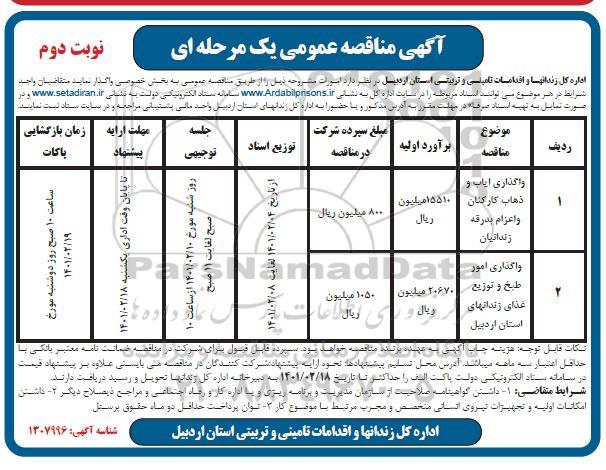 آگهی مناقصه عمومی یک مرحله ای
نوبت دوم
اداره کل زندانها و اقدامات تامینی و تربیتی استان اردبیل در نظر دارد امورات مشروحه ذیل را از طریق مناقصه عمومی به بخش خصوصی واگذار نماید متقاضیان واجد
شرایط در هر موضوع می توانند اسناد مربوطه را در سایت اداره کل به نشانی www.Ardabilprisons.ir سامانه ستاد الکترونیکی دولت به نشانی www.setadiran.ir و در
صورت تمایل به تهیه اسناد صرفاً در مهلت مقرر به آدرس مذکور و یا حضورا به اداره کل زندانهای استان اردبیل واحد مالی پشتیبانی مراجعه و در سایت ستاد ثبت نمایند.
ردیف
موضوع
مناقصه
برآورد اولیه
مبلغ سپرده شرکت
در مناقصه
توزیع اسناد
جلسه
توجیهی
مهلت ارایه
پیشنهاد
زمان بازگشایی
پاکات
۱
واگذاری ایاب و
ذهاب کارکنان
واعزام بدرقه
زندانیان
۱۵۵۱۰میلیون
ریال
۸۰۰ میلیون ریال
۲
واگذاری امور
طبخ و توزیع
غذای زندانهای
استان اردبیل
۲۰۶۷۰ میلیون
ریال
۱۰۵۰ میلیون
ریال
از تاریخ ۱۴۰۱/۰۲/۰۴ لغایت ۱۴۰۱/۰۲/۰۸
روز شنبه مورخ ۱۴۰۱/۰۲/۱۰ از ساعت ۱۰
صبح لغایت ۱۱ صبح
تا پایان وقت اداری یکشنبه ۱۴۰۱/۰۲/۱۸
ساعت ۱۰ صبح روز دوشنبه مورخ
۱۴۰۱/۰۲/۱۹
ParsNamadData
نکات قابل توجه: هزینه چاپ آگهی به عهده برنده مناقصه خواهد بود. سپرده قابل قبول برای شرکت در مناقصه ضمانت نامه معتبر بانکی با
حداقل اعتبار سه ماهه میباشد. آدرس محل تسلیم پیشنهادها: نحوه ارایه پیشنهاد:شرکت کنندگان در مناقصه می بایستی علاوه بر پیشنهاد قیمت
در سامانه ستاد الکترونیکی دولت پاکت الف را حداکثر تا تاریخ ۱۴۰۱/۰۲/۱۸ به دبیرخانه اداره کل زندانها تحویل و رسید دریافت دارند.
شرایط متقاضی: ۱- داشتن گواهینامه صلاحیت از سازمان مدیریت و برنامه ریزی و یا اداره کار و رفاه اجتماعی و مراجع ذیصلاح دیگر ۲- داشتن
امکانات اولیه و تجهیزات نیروی انسانی متخصص و مجرب مرتبط با موضوع کار ۳- توان پرداخت حداقل دو ماه حقوق پرسنل
اداره کل زندانها و اقدامات تامینی و تربیتی استان اردبیل
شناسه آگهی: ۱۳۰۷۹۹۶